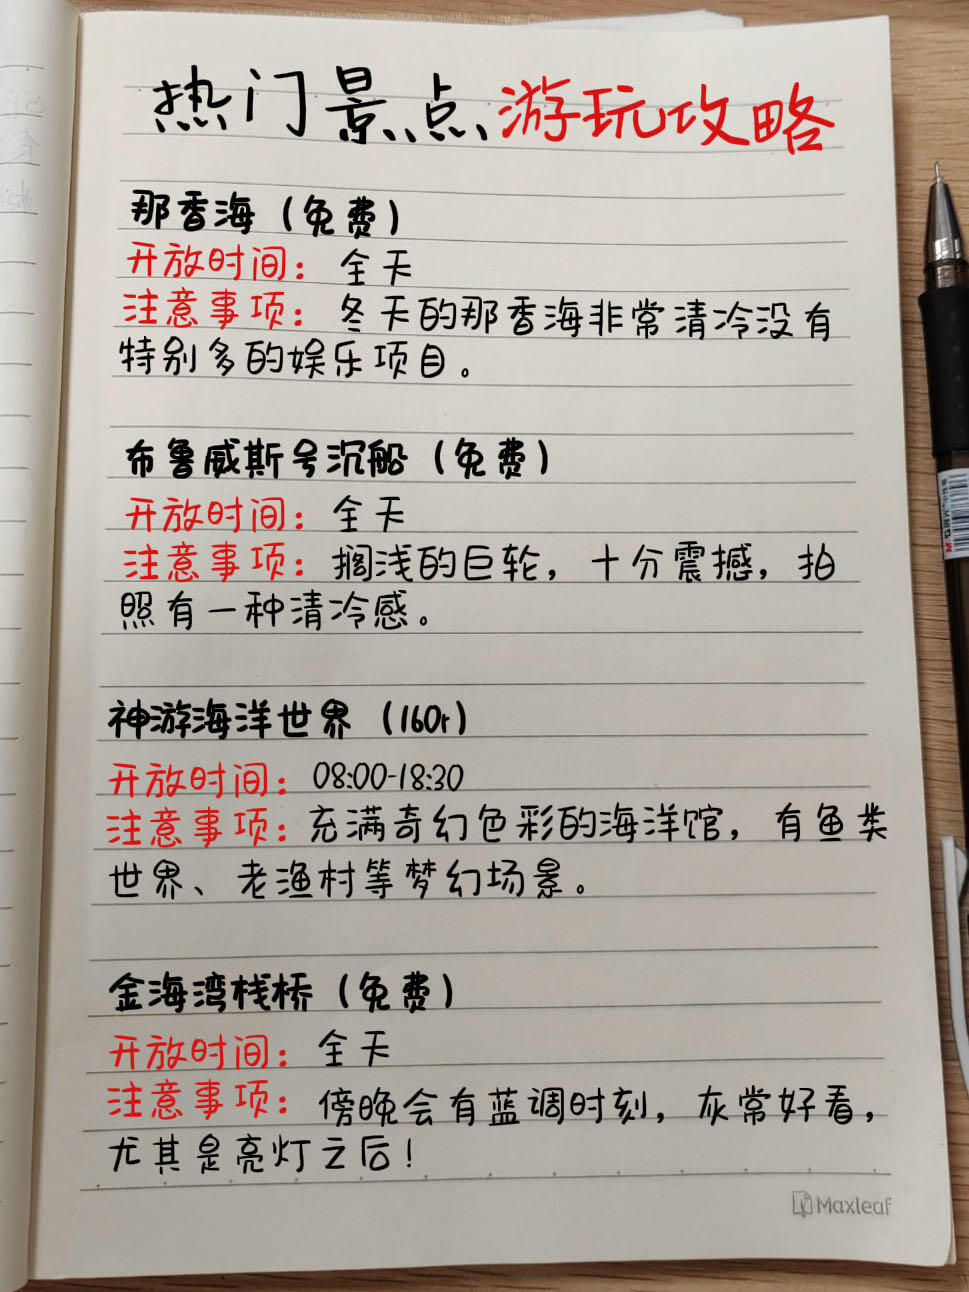 热门景点游玩攻略
那香海（免费）
开放时间：全天
注意事项：冬天的那香海非常清冷没有
特别多的娱乐项目。
布鲁威斯号沉船（免费）
开放时间：全天
注意事项：搁浅的巨轮，十分震撼，拍
照有一种清冷感。
神游海洋世界（160r）
开放时间：08:00-18:30
注意事项：充满奇幻色彩的海洋馆，有鱼类
世界、老渔村等梦幻场景。
金海湾栈桥（免费）
开放时间：全天
注意事项：傍晚会有蓝调时刻，灰常好看，
尤其是亮灯之后！
Maxleaf
M&G